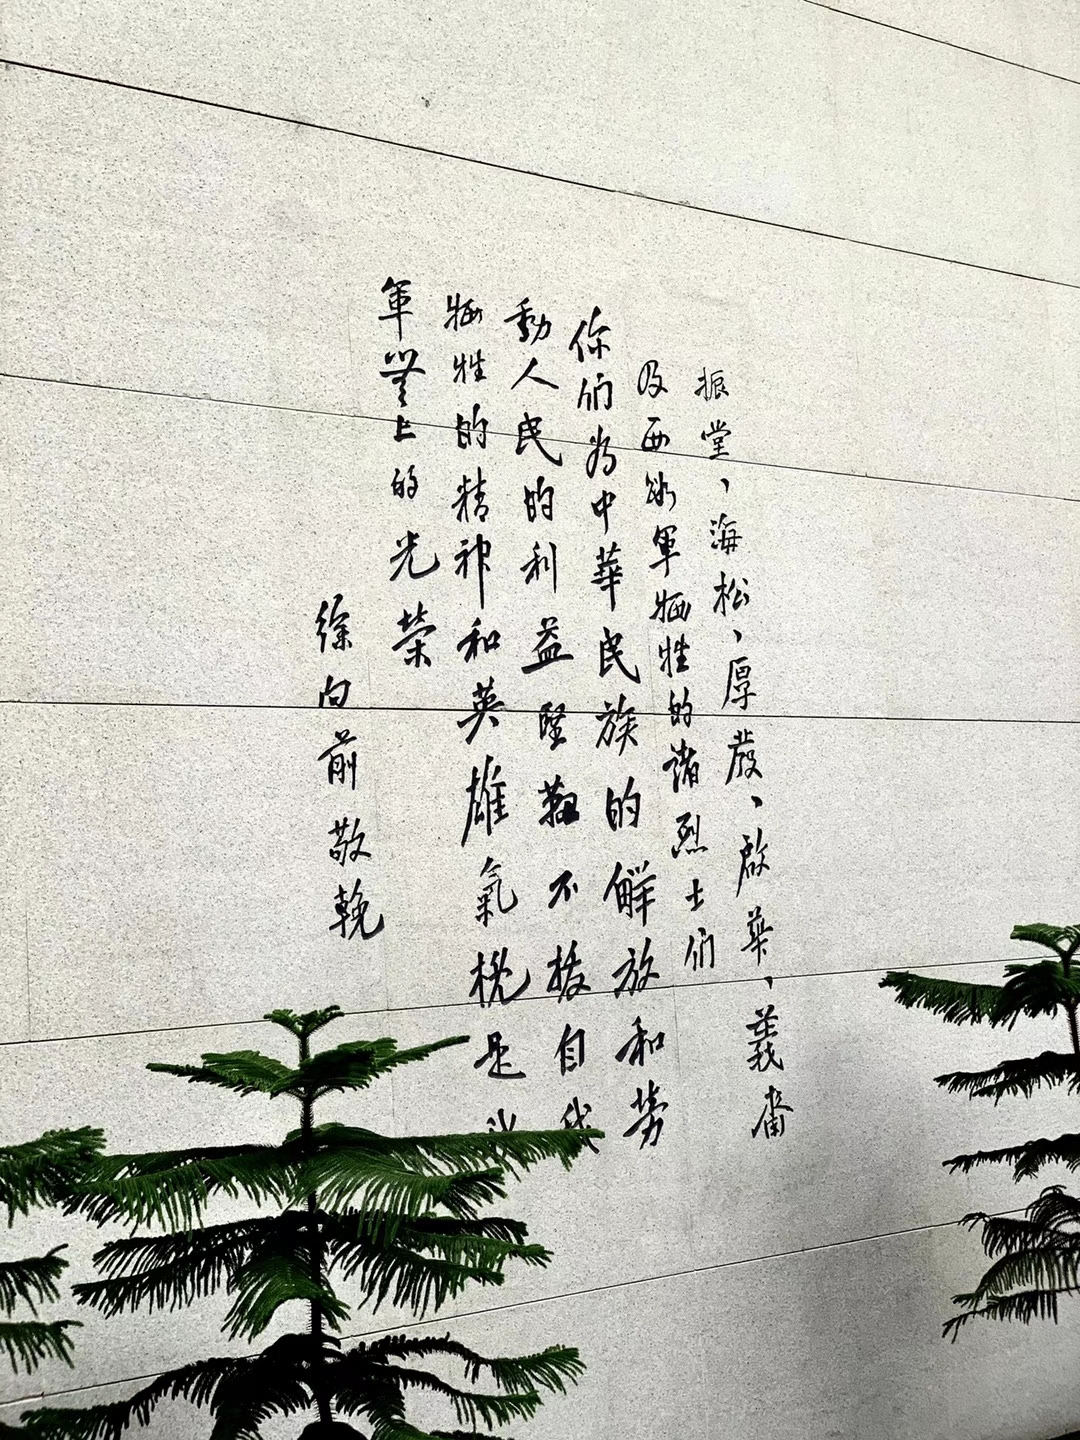 振堂、海松、厚發、啟華、義齋
及西路軍牺牲的諸烈士们
你们为中華民族的觧放和劳
動人民的利益堅韌不拔自
牺牲的精神和英雄氣概是
軍無上的光荣
徐向前敬輓